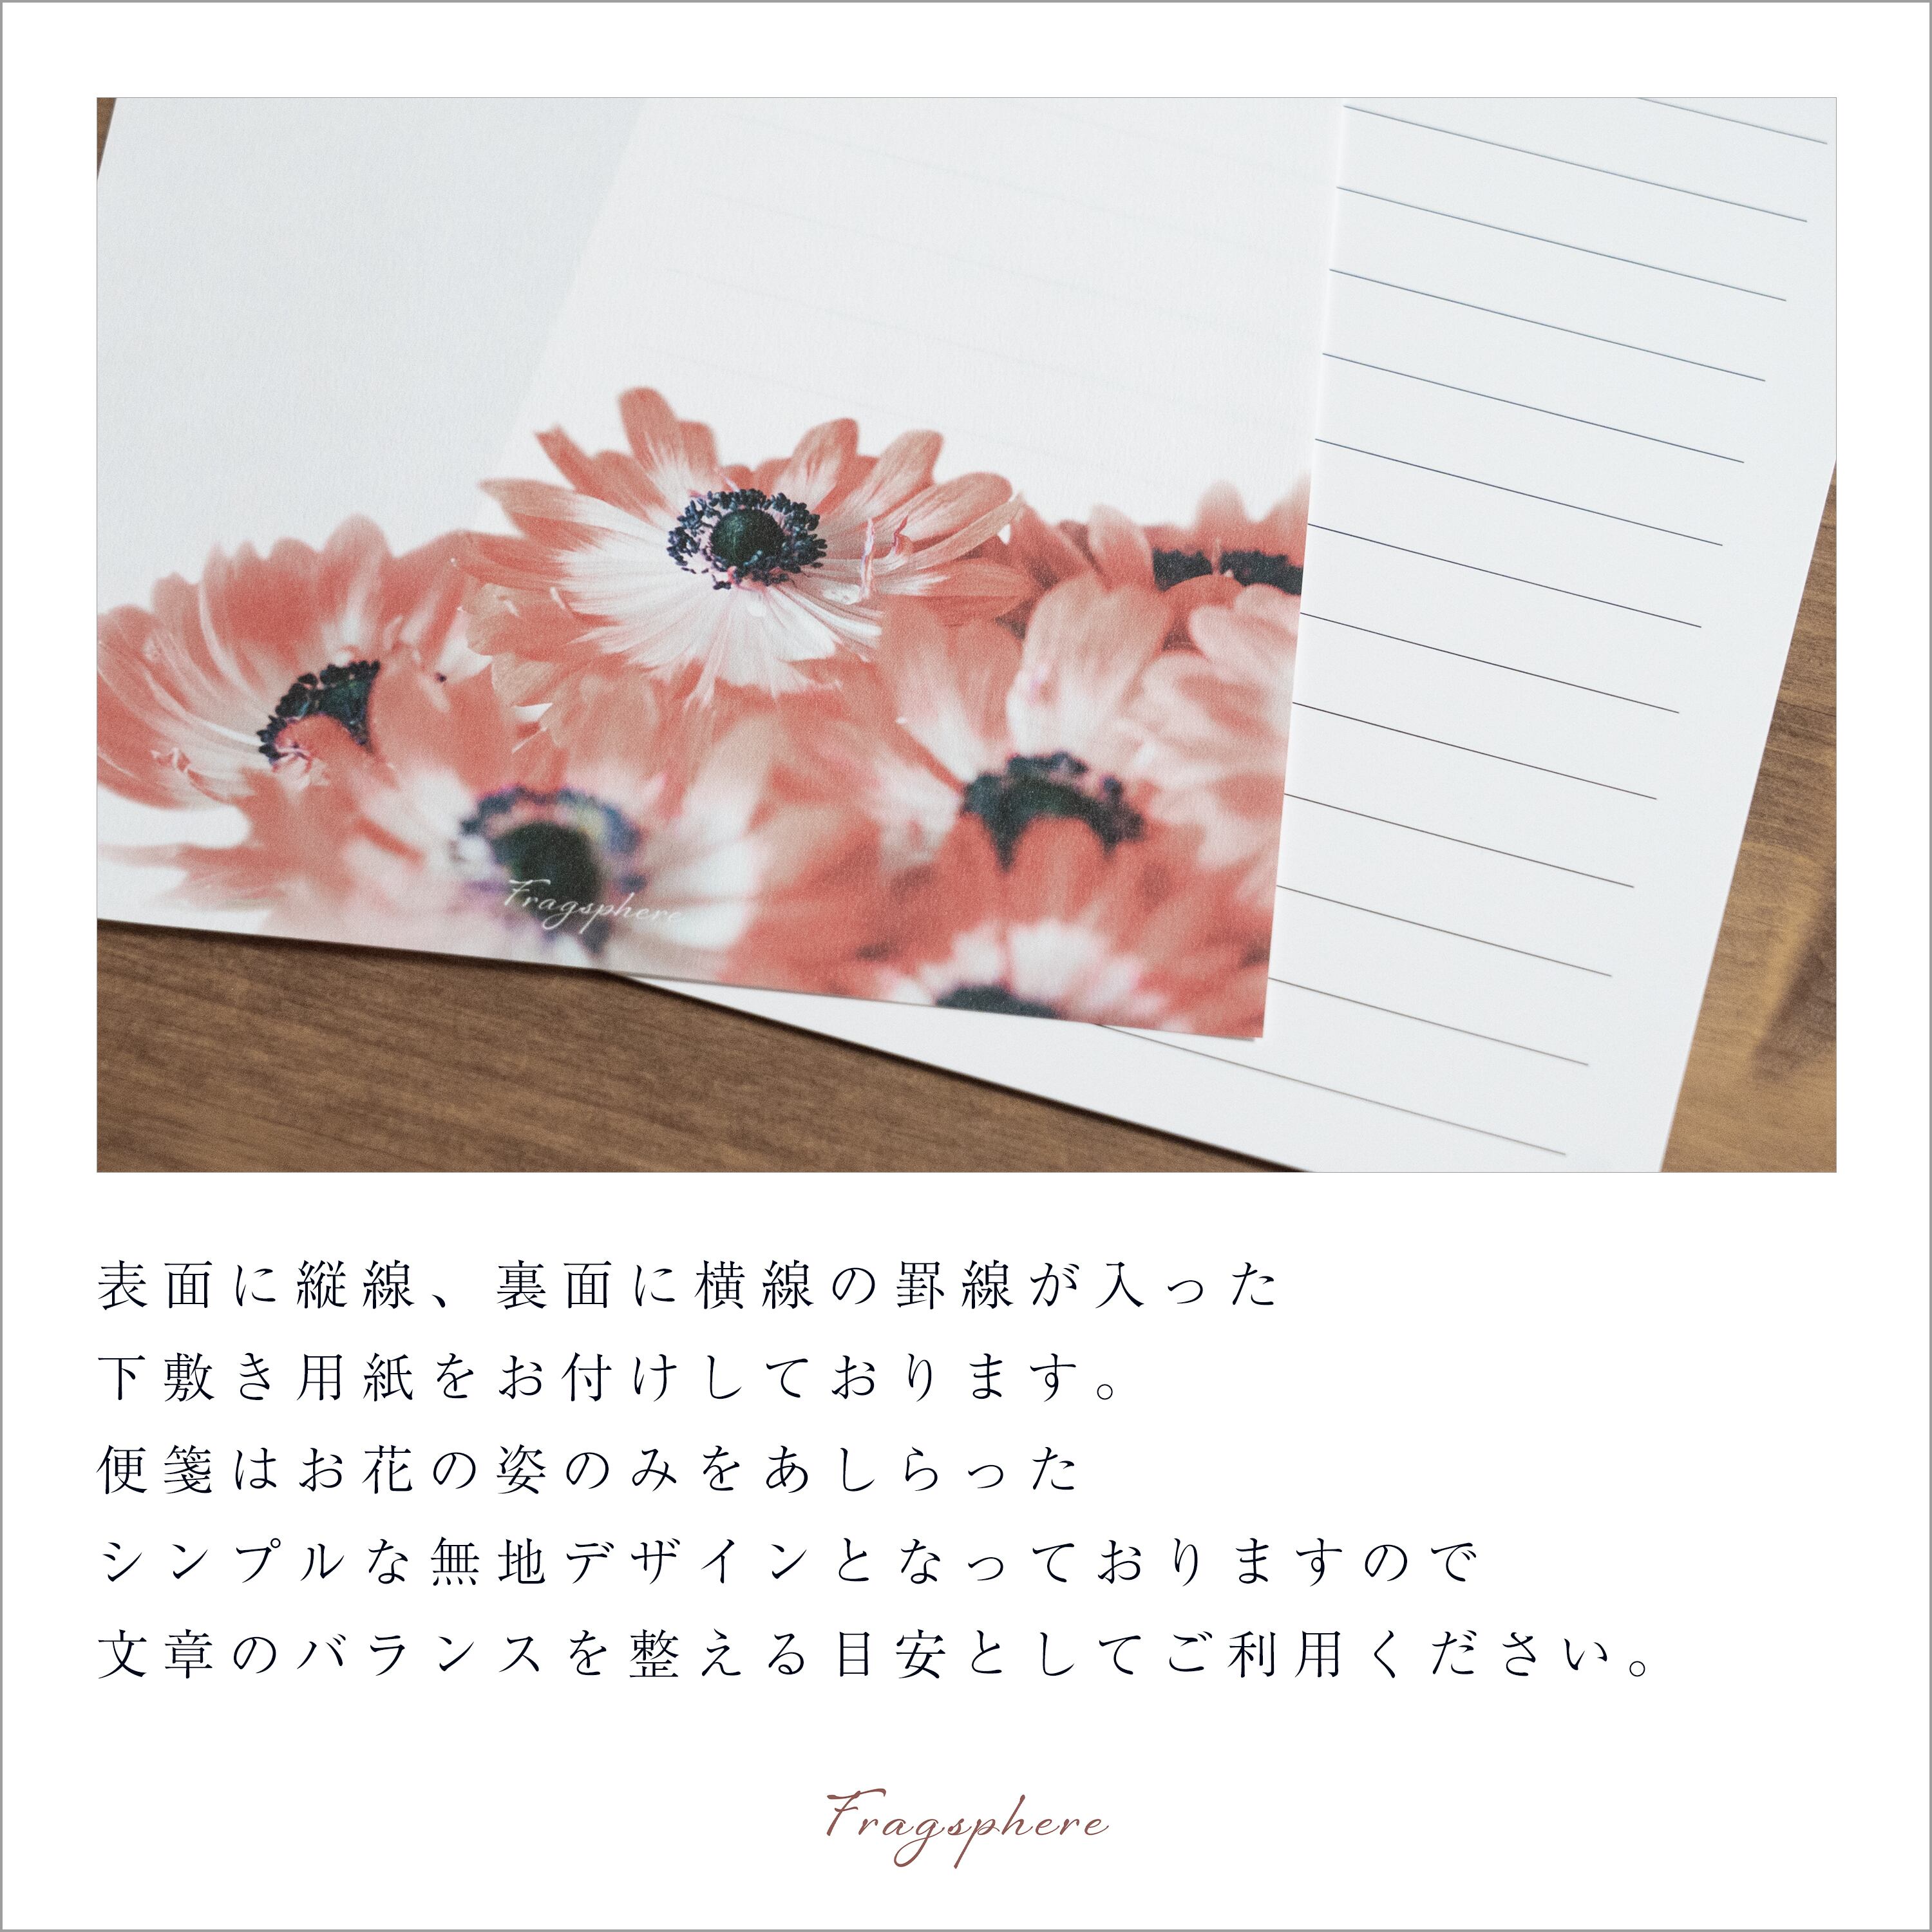 Fragsphere
表面に縦線、裏面に横線の罫線が入った
下敷き用紙をお付けしております。
便箋はお花の姿のみをあしらった
シンプルな無地デザインとなっておりますので
文章のバランスを整える目安としてご利用ください。
Fragsphere